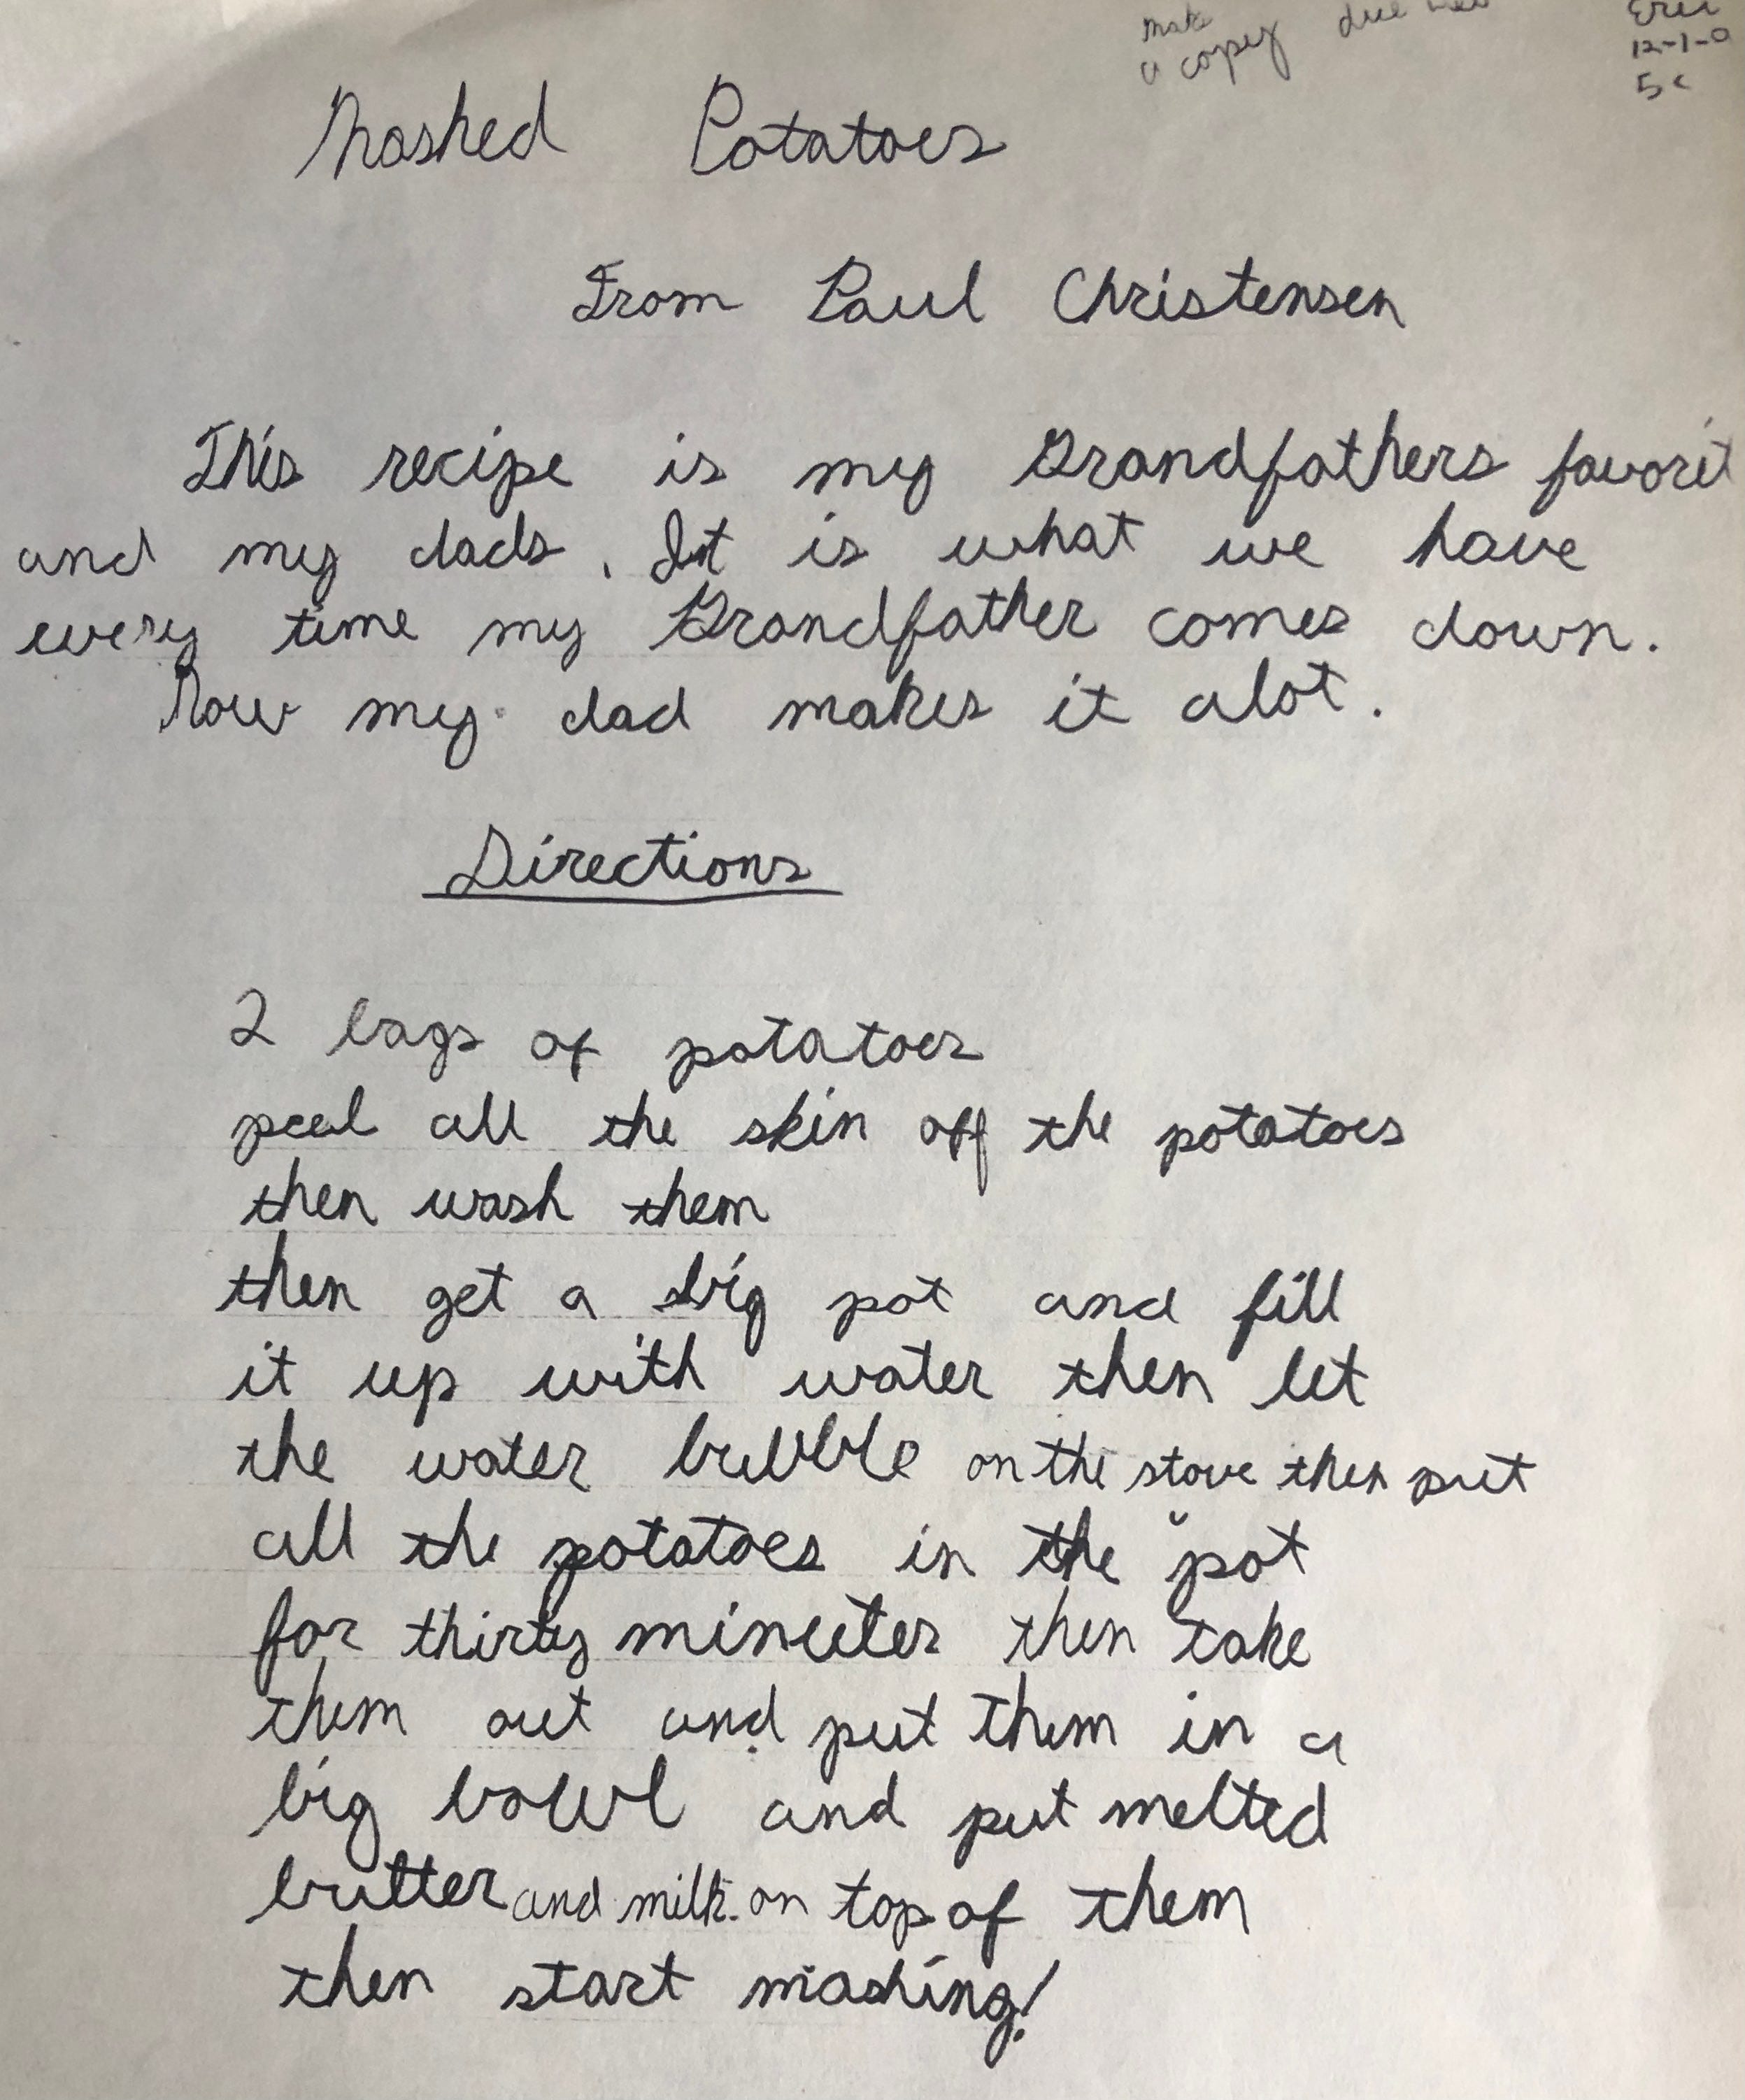 make due
a copy
12-1-0
5c
Mashed Potatoes
From Paul Christensen
This recipe is my Grandfathers favorit
and my dads. It is what we have
every time my Grandfather comes down.
Now my dad makes it alot.
Directions
2 bags of potatoes
peel all the skin off the potatoes
then wash them
then get a big pot and fill
it up with water then let
the water bubble on the stove then put
all the potatoes in the pot
for thirty minutes then take
them out and put them in a
big bowl and put melted
butter and milk on top of them
then start mashing!